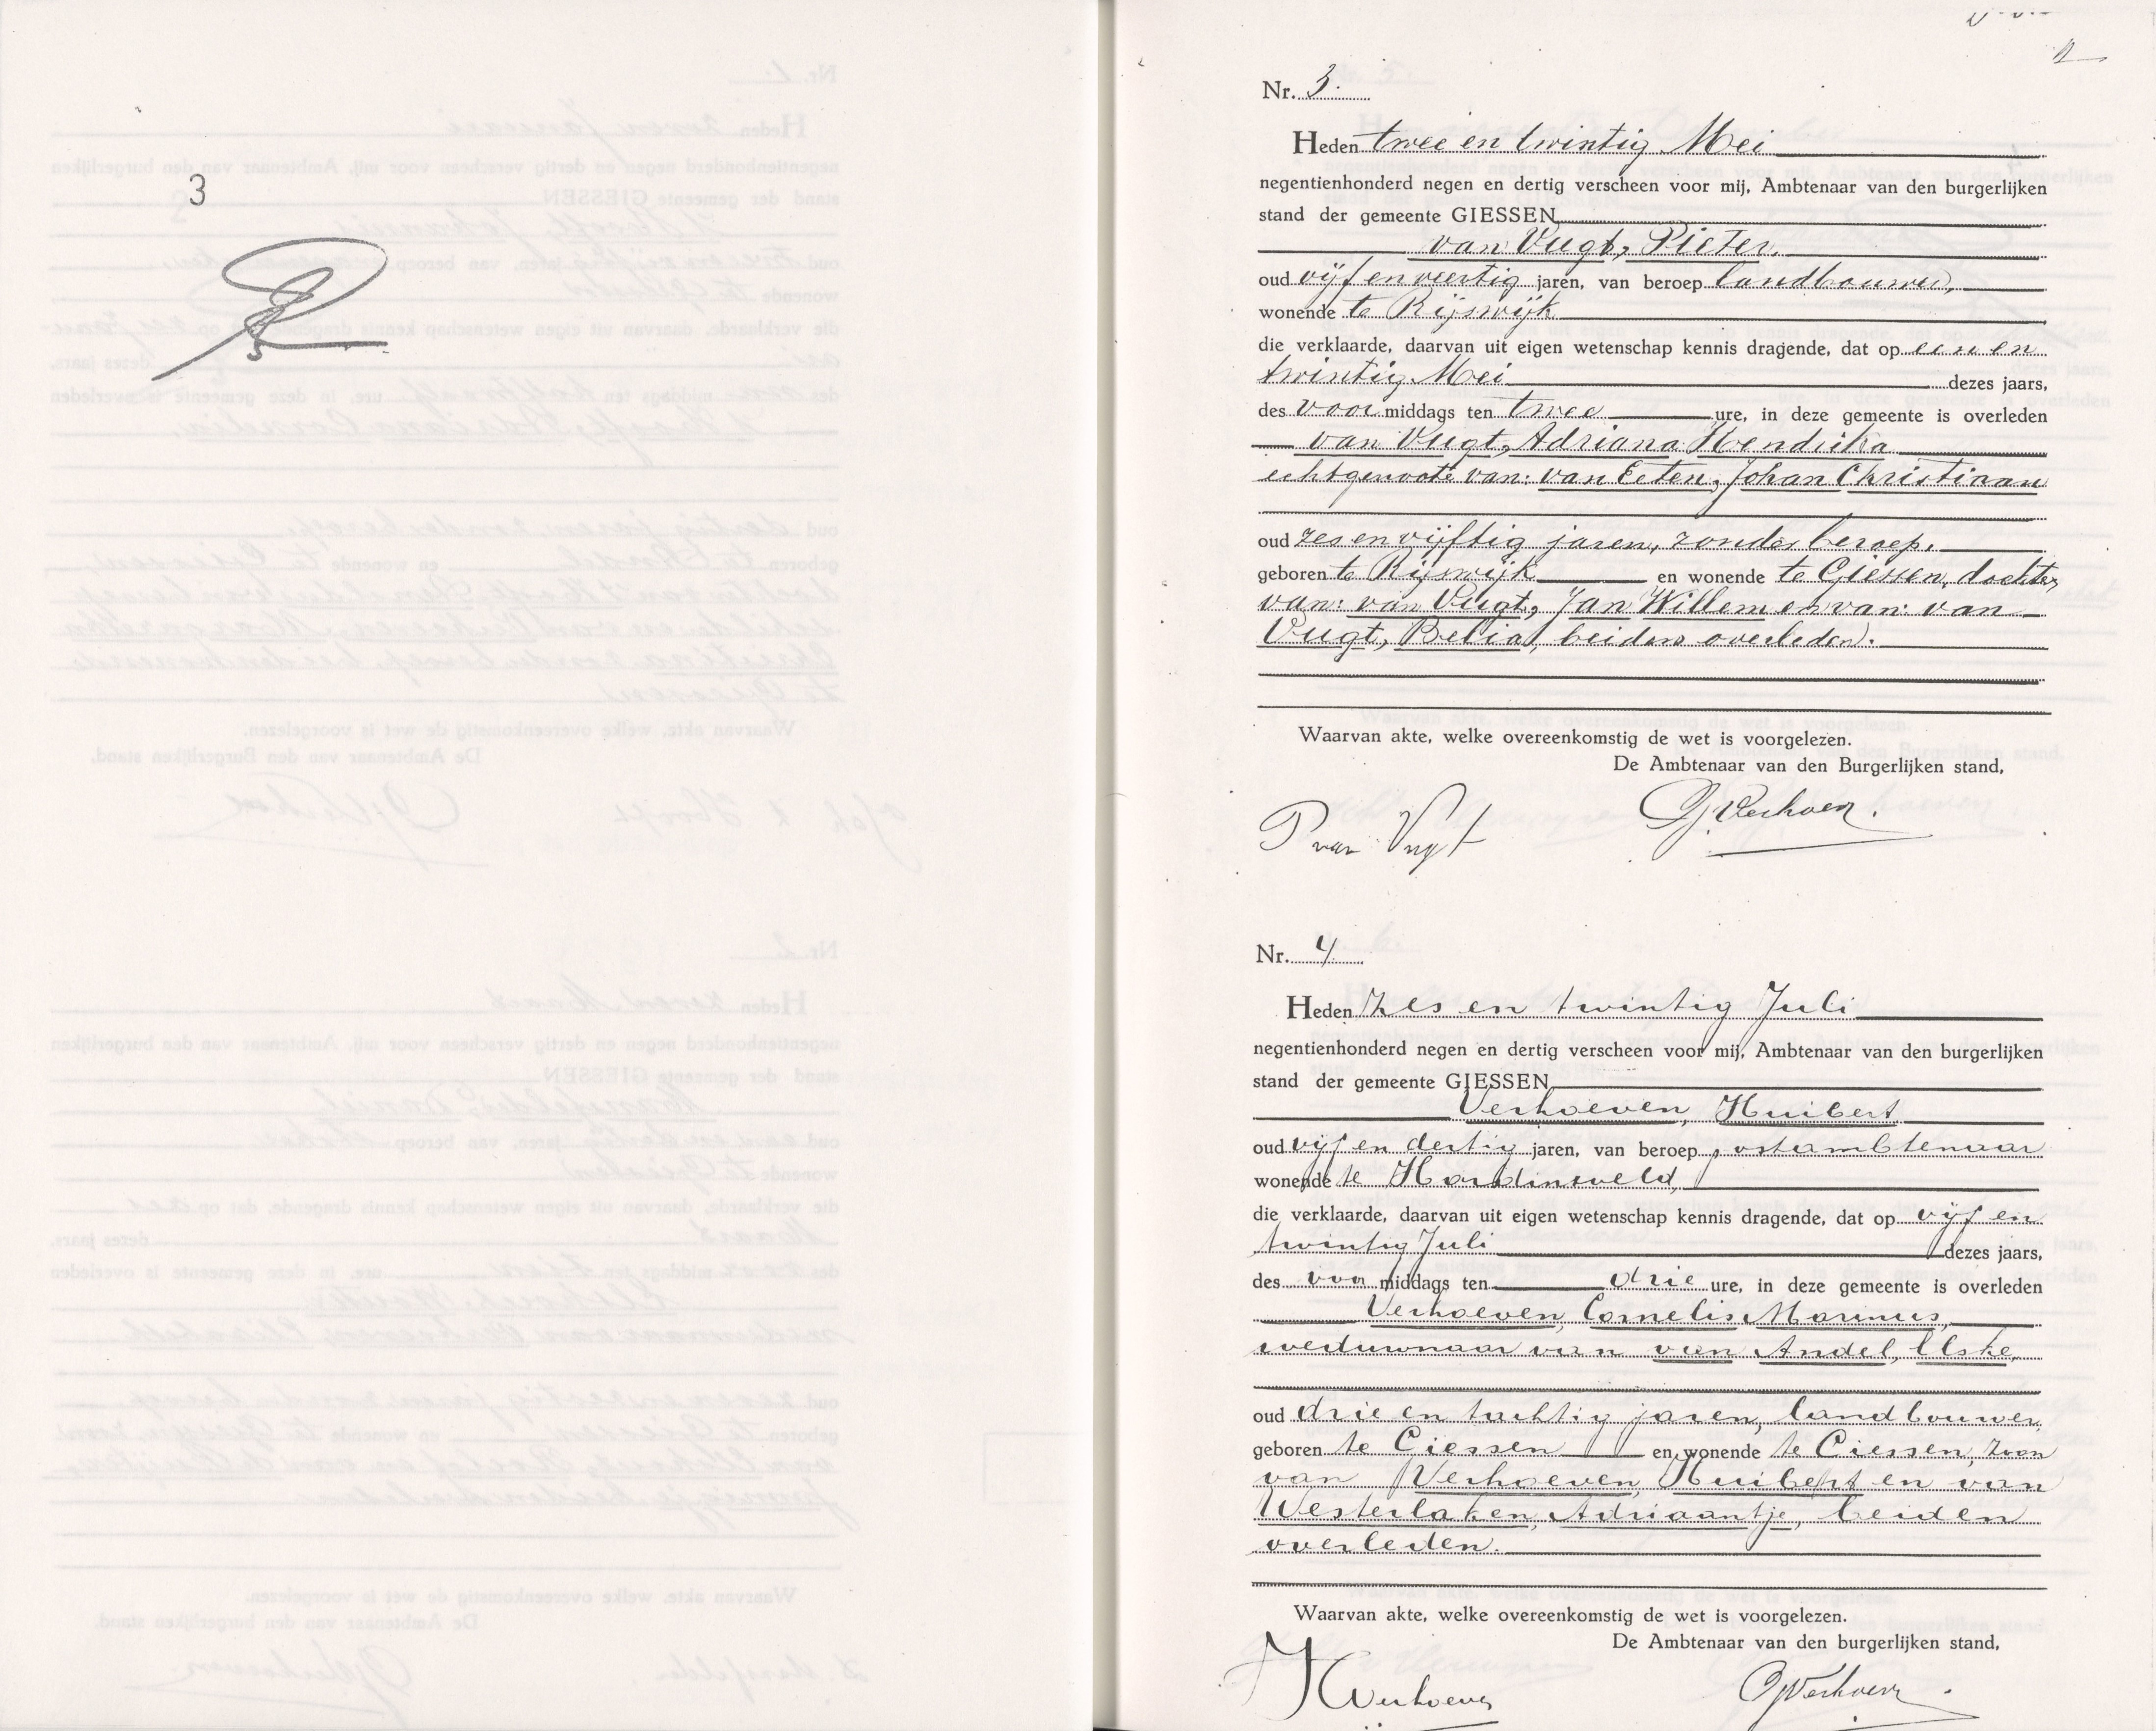 3
Nr. 3.
Heden twee en twintig Mei
negentienhonderd negen en dertig verscheen voor mij, Ambtenaar van den burgerlijken
stand der gemeente GIESSEN
van Vugt, Pieter,
oud vijf en veertig jaren, van beroep landbouwer,
wonende te Rijswijk
die verklaarde, daarvan uit eigen wetenschap kennis dragende, dat op een en
twintig Mei dezes jaars,
des voor middags ten twee ure, in deze gemeente is overleden
van Vugt, Adriana Hendrika
echtgenoote van: van Eeten, Johan Christiaan
oud zes en vijftig jaren, zonder beroep,
geboren te Rijswijk en wonende te Giessen, dochter
van: van Vugt, Jan Willem en van: van
Vugt, Belia, beiden overleden.
Waarvan akte, welke overeenkomstig de wet is voorgelezen.
De Ambtenaar van den Burgerlijken stand,
P van Vugt Verhoeven
Nr. 4
Heden zes en twintig Juli
negentienhonderd negen en dertig verscheen voor mij, Ambtenaar van den burgerlijken
stand der gemeente GIESSEN
Verhoeven, Huibert
oud vijf en dertig jaren, van beroep postambtenaar
wonende te Hardinxveld,
die verklaarde, daarvan uit eigen wetenschap kennis dragende, dat op vijf en
twintig Juli dezes jaars,
des voor middags ten drie ure, in deze gemeente is overleden
Verhoeven, Cornelis Marinus,
weduwnaar van van Andel, Elske,
oud drie en tachtig jaren, landbouwer,
geboren te Giessen en wonende te Giessen, zoon
van Verhoeven, Huibert en van
Westerlaken, Adriaantje, beiden
overleden.
Waarvan akte, welke overeenkomstig de wet is voorgelezen.
De Ambtenaar van den burgerlijken stand,
H Verhoeven Verhoeven